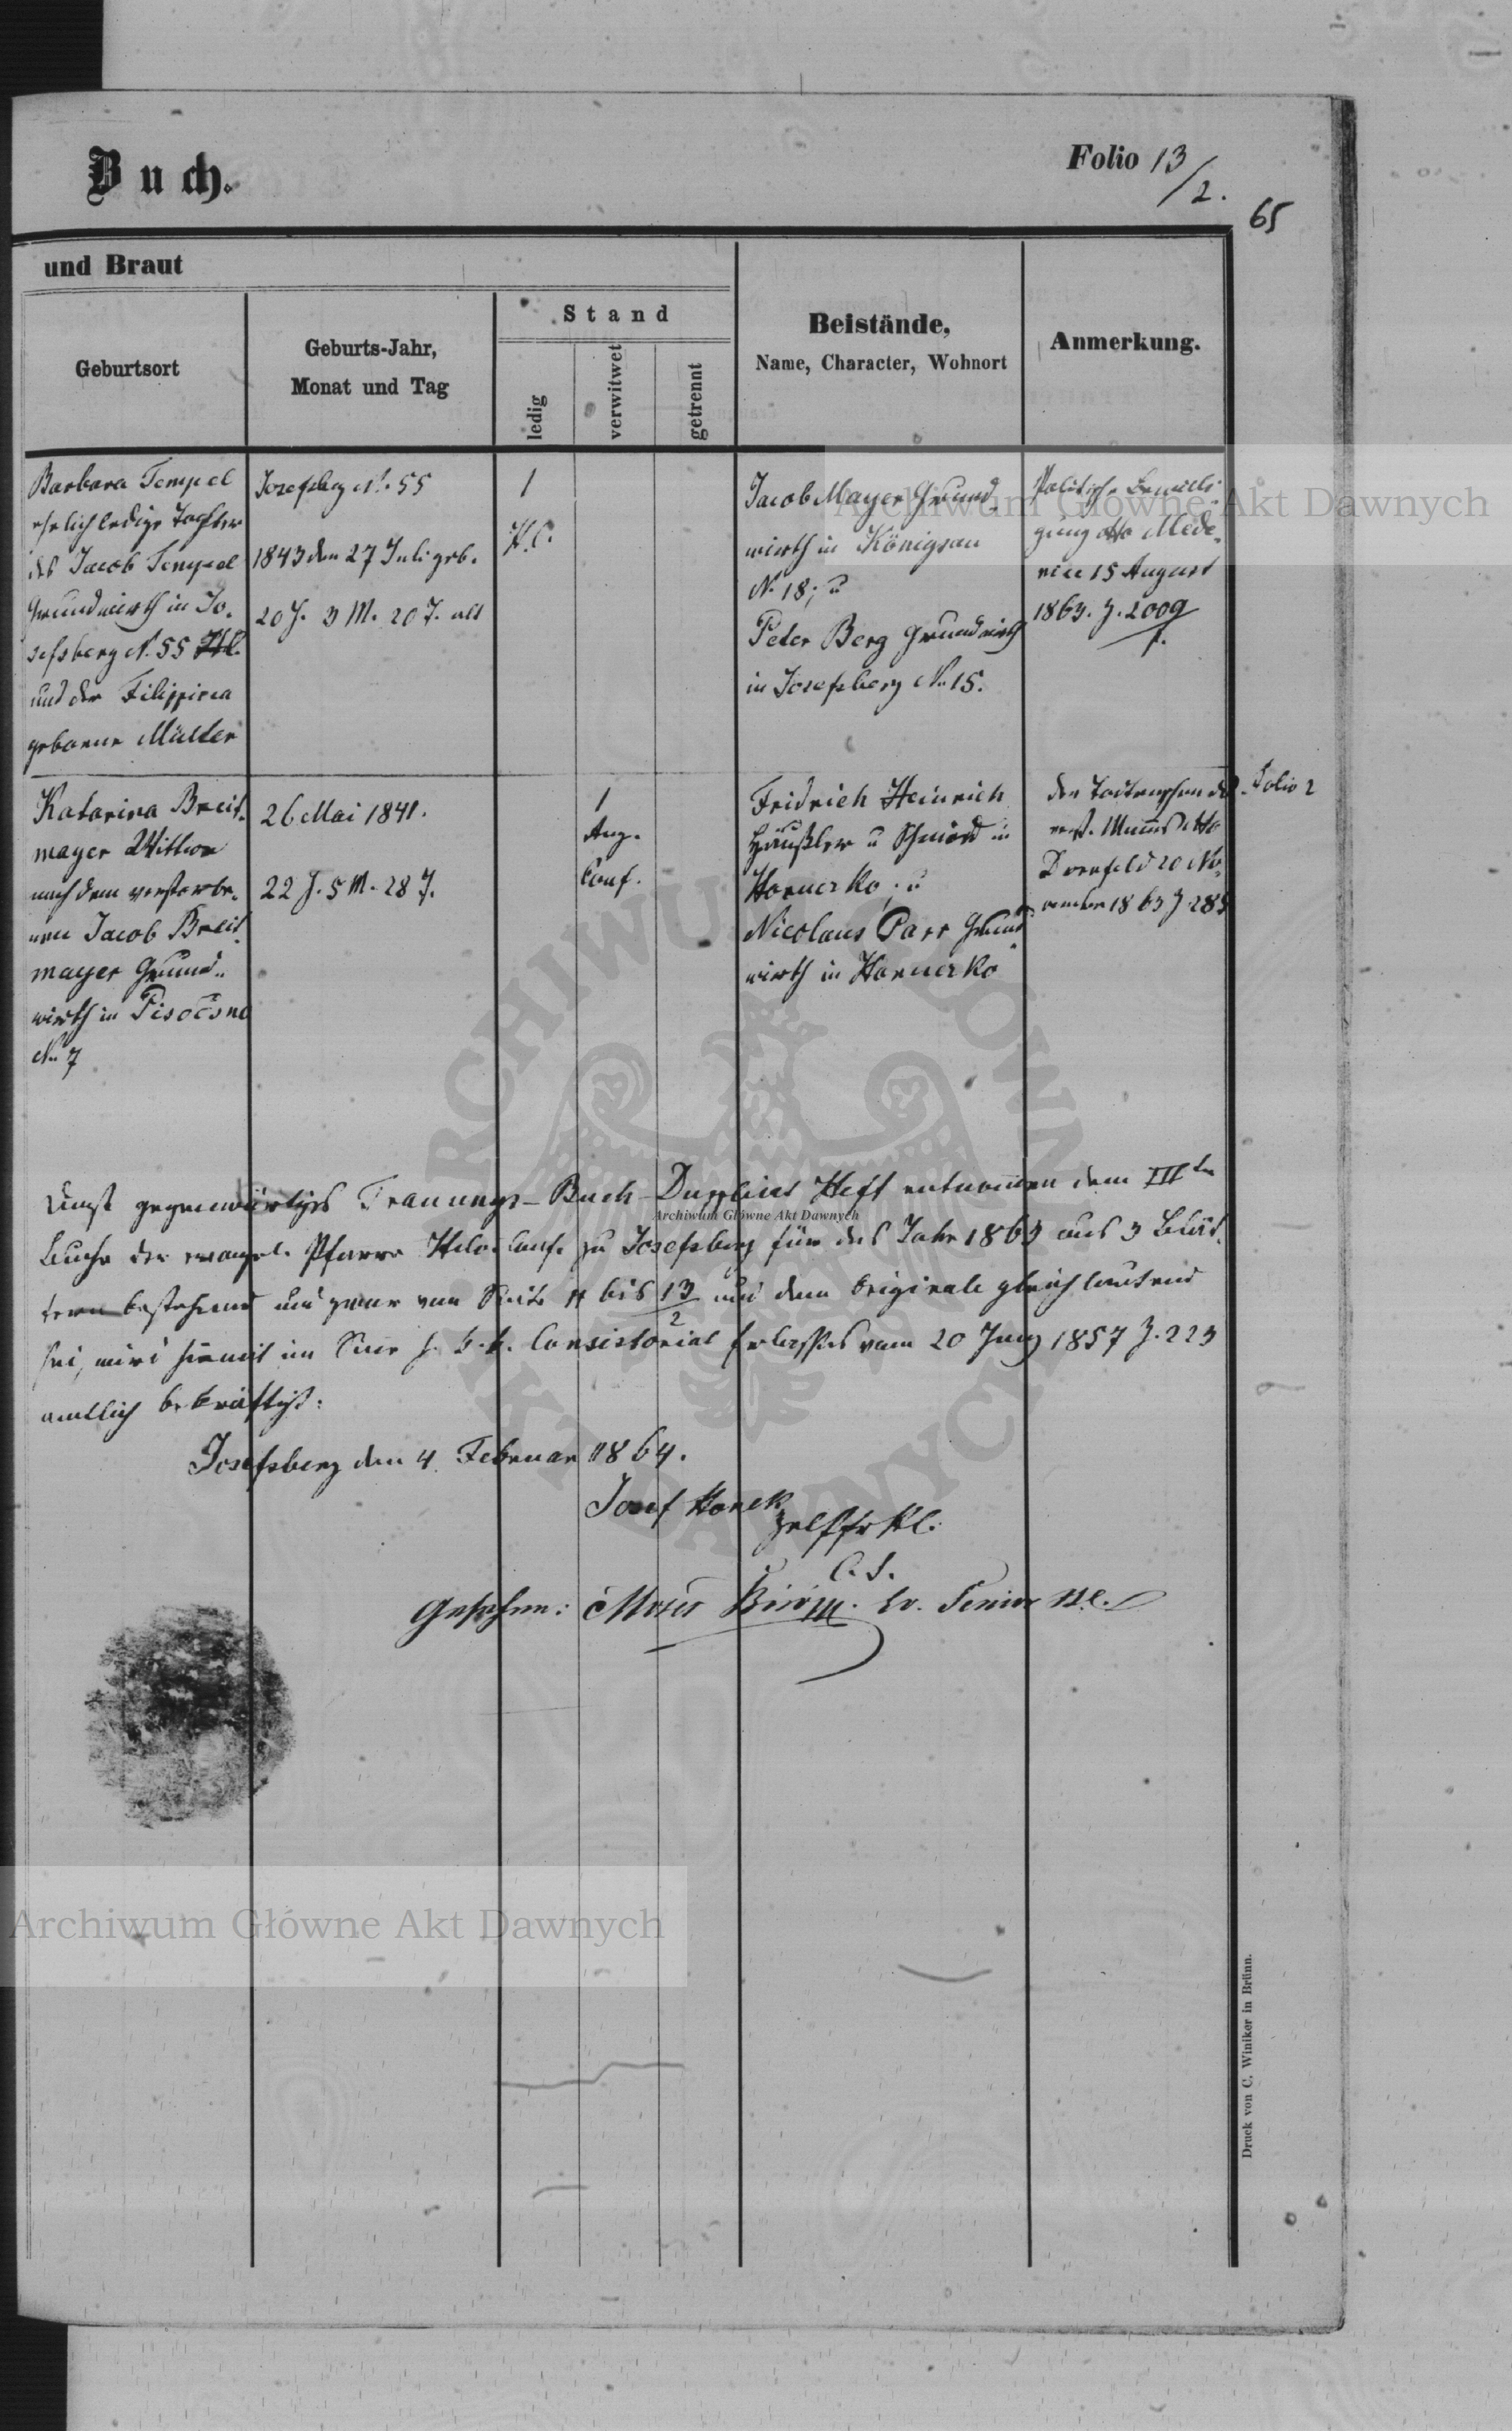 Buch.
Folio 13/2.
65
und Braut
Geburtsort
Geburts-Jahr,
Monat und Tag
Stand
ledig
verwitwet
getrennt
Beistände,
Name, Character, Wohnort
Anmerkung.
Barbara Tempel
ehelich ledige Tochter
des Jacob Tempel
Grundwirth in Jo-
sefsberg N. 55
und der Filippina
geborene Müller
Josefsberg N. 55
1843 den 27 Juli geb.
20 J. 3 M. 20 T. alt
1
H. C.
Jacob Mayer Grund-
wirth in Königsau
N. 18; u
Peter Berg Grundwirth
in Josefsberg N. 15.
Politische Bewilli-
gung dto Mede-
nice 15 August
1863. Z. 2009
Katarina Breit-
mayer Wittwe
nach dem verstorbe-
nen Jacob Breit-
mayer Grund-
wirth in Pisočsna
N. 7
26 Mai 1841.
22 J. 5 M. 28 T.
1
Aug.
Conf.
Fridrich Heinrich
Häußler u Schmied in
Horucko; u
Nicolaus Parr Grund-
wirth in Horucko
den Todtenschein des
verst. dto
Dornfeld 20 No-
vember 1863 Z 285
Folio 2
gegenwärtiges Trauungs-Buch-Duplicat Heft entnommen dem IIIten
Buche der evangel. Pfarre Helv. Conf. zu Josefsberg für das Jahr 1863 aus 3 Blät-
tern bestehend und zwar von Seite 11 bis 13/2 und dem Originale gleichlautend
sei, wird hiemit im Sinne h. k. k. Consistorial Erlasses vom 20 Juny 1857 Z. 223
amtlich bekräftigt:
Josefsberg den 4. Februar 1864.
Josef Honek
Gesehen: Moses Ev. Senior
Archiwum Główne Akt Dawnych
Archiwum Główne Akt Dawnych
Archiwum Główne Akt Dawnych
Druck von C. Winiker in Brünn.